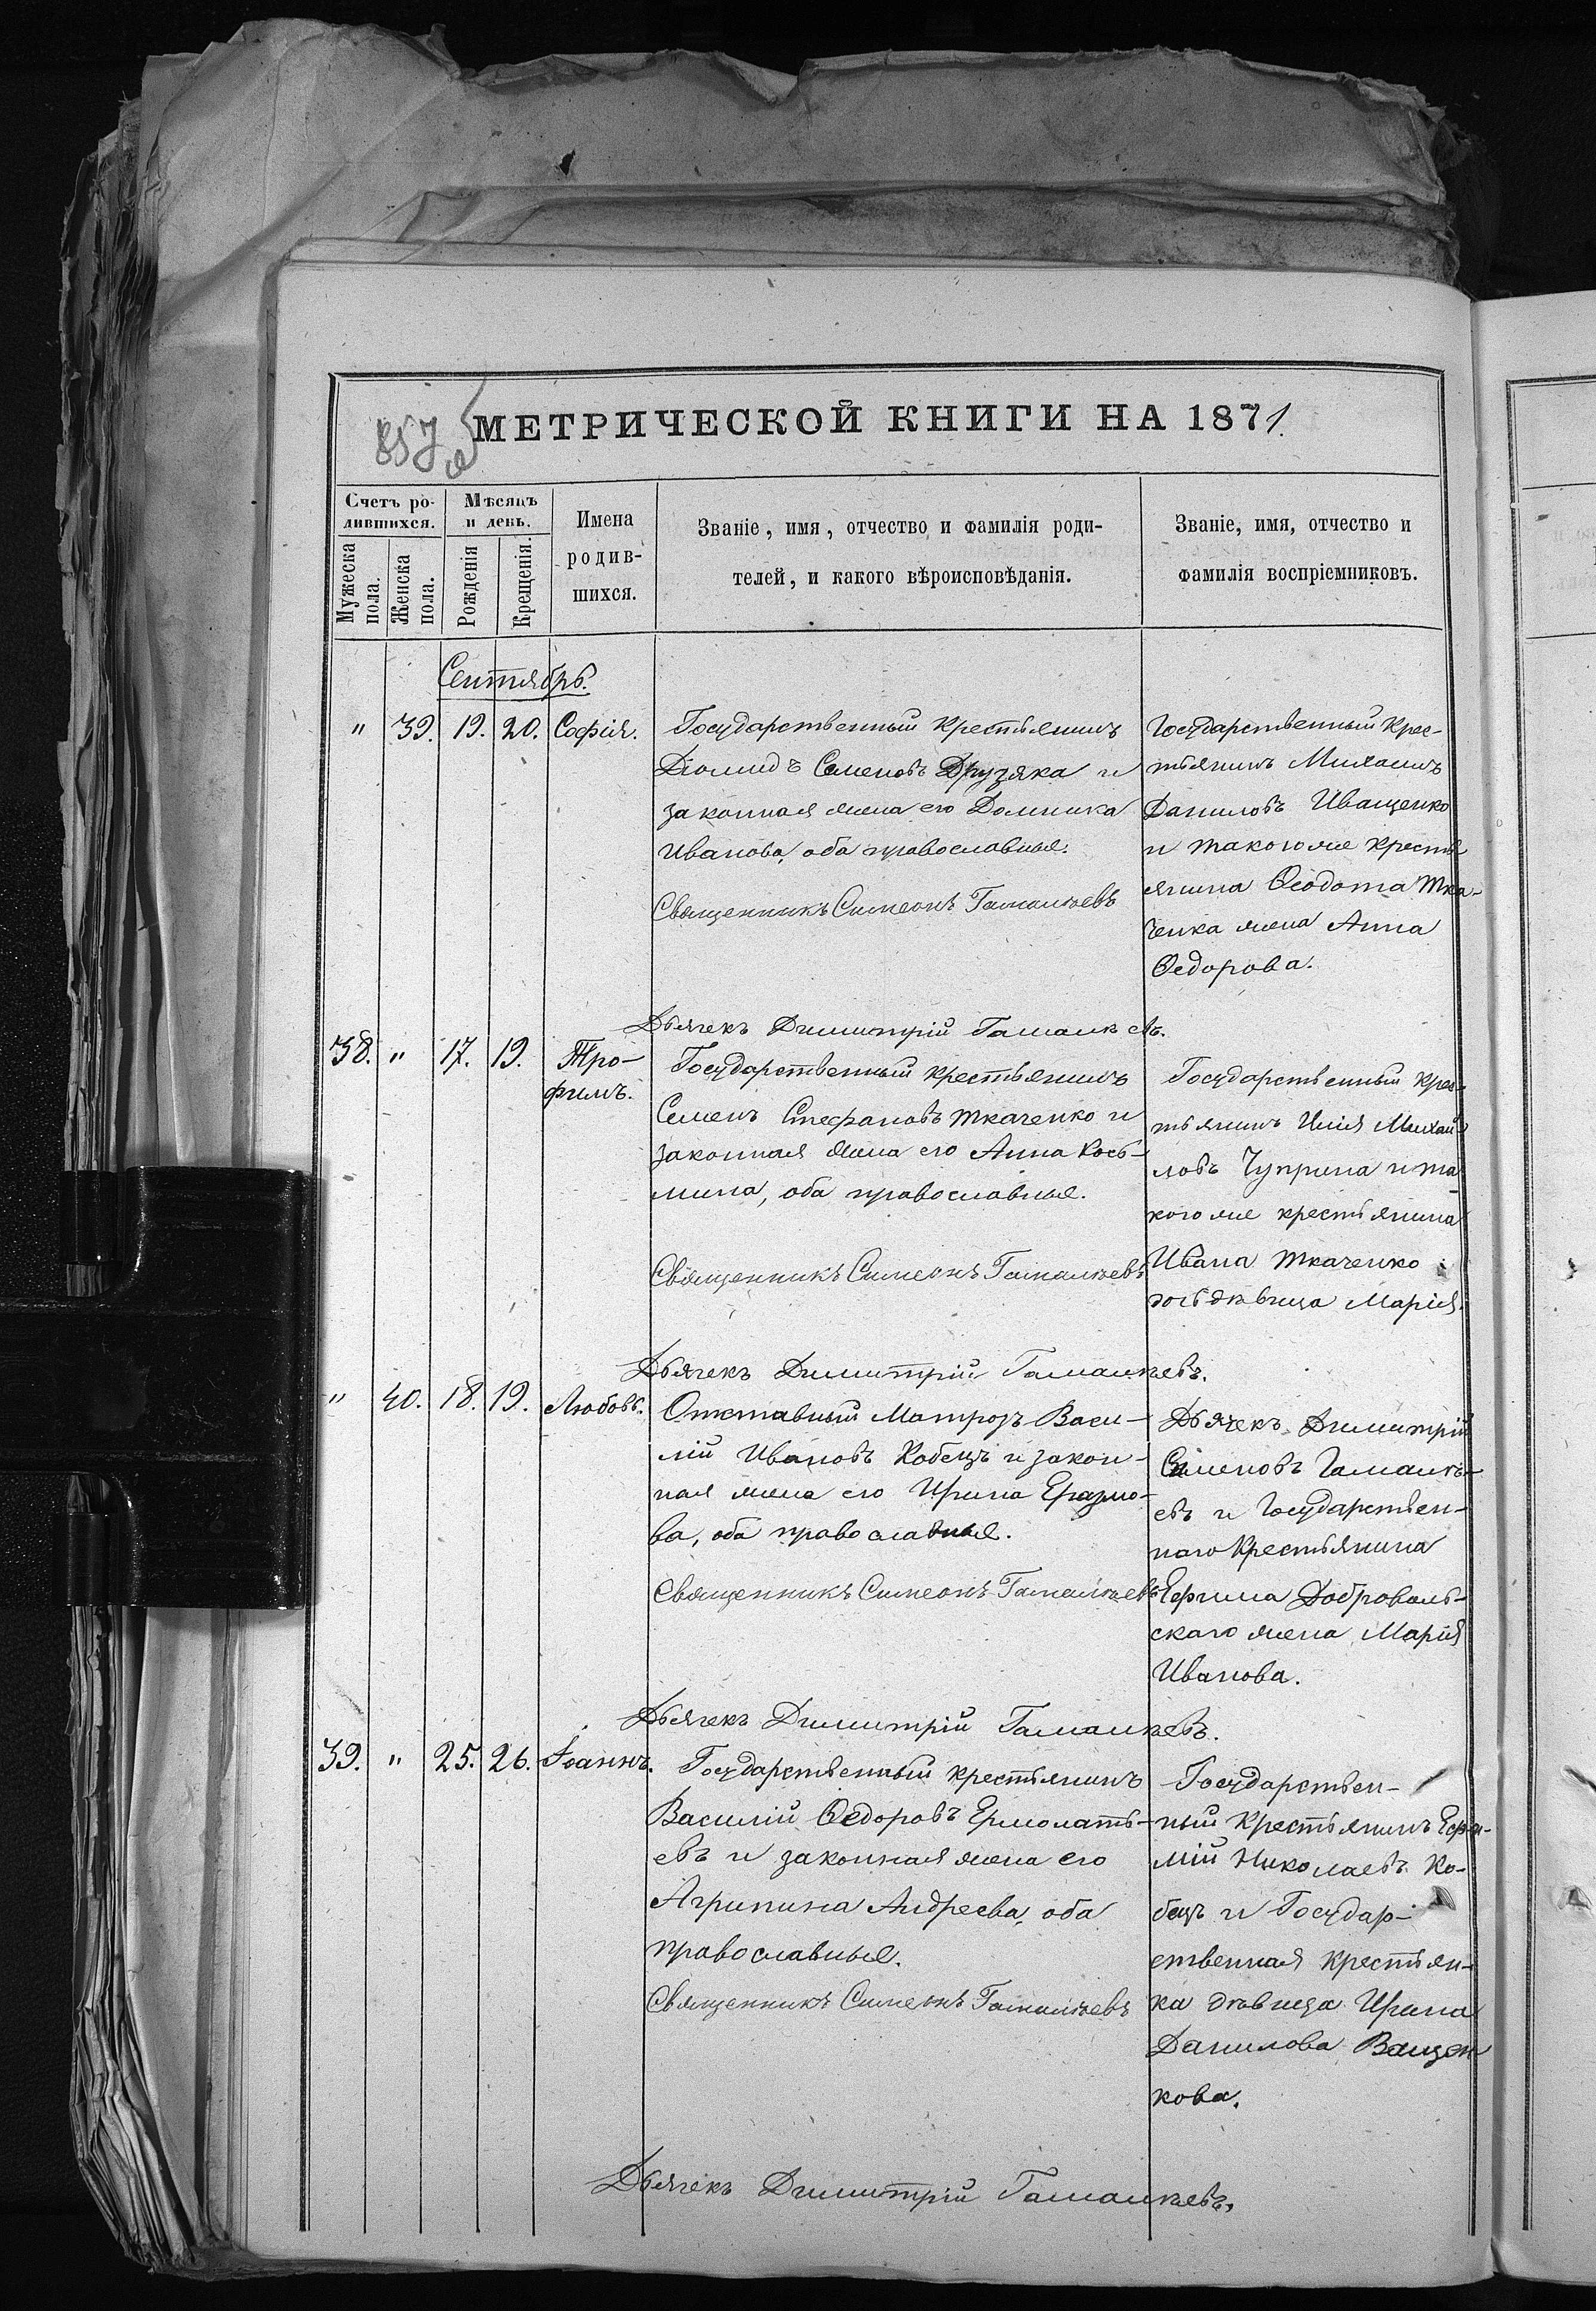 857
МЕТРИЧЕСКОЙ КНИГИ НА 1871.
Счетъ ро-
дившихся.
Мужеска
пола.
Женска
пола.
Мѣсяцъ
и день.
Рожденія
Крещенія.
Имена
родив-
шихся.
Званіе, имя, отчество и фамилія роди-
телей, и какого вѣроисповѣданія.
Званіе, имя, отчество и
фамилія воспріемниковъ.
Сентябрь.
" 39. 19. 20. Софія.
Государственный крестьянинъ
Діомидъ Семеновъ Друзяка и
законная жена его Домника
Иванова, оба православные.
Священникъ Симеонъ Гамалѣевъ
Государственный крес-
тьянинъ Михаилъ
Даниловъ Иващенко
и такого же кресть
янина Ѳеодота Тка-
ченка жена Анна
Ѳедорова.
Дьячекъ Димитрій Гамалѣевъ.
38. " 17. 19. Тро-
фимъ.
Государственный крестьянинъ
Семенъ Стефановъ Ткаченко и
законная жена его Анна Кось-
мина, оба православные.
Священникъ Симеонъ Гамалѣевъ
Государственный крес-
тьянинъ Илія Михай
ловъ Чуприна и та
кого же крестьянина
Ивана Ткаченко
дочь дѣвица Марія.
Дьячекъ Димитрій Гамалѣевъ.
" 40. 18. 19. Любовь.
Отставный Матрозъ Васи-
лій Ивановъ Кобецъ и закон-
ная жена его Ирина Еразмо-
ва, оба православные.
Священникъ Симеонъ Гамалѣевъ
Дьячекъ Димитрій
Сименовъ Гамалѣ-
евъ и Государствен-
наго Крестьянина
Ефима Доброволь-
скаго жена Марія
Иванова.
Дьячекъ Димитрій Гамалѣевъ.
39. " 25. 26. Іоаннъ.
Государственный крестьянинъ
Василій Ѳедоровъ Ермолать-
евъ и законная жена его
Агрипина Андреева, оба
православные.
Священникъ Симеонъ Гамалѣевъ
Государствен-
ный Крестьянинъ
Николаевъ Ко-
бецъ и Государ-
ственная крестьян-
ка дѣвица Ирина
Данилова Ващен
кова.
Дьячекъ Димитрій Гамалѣевъ.